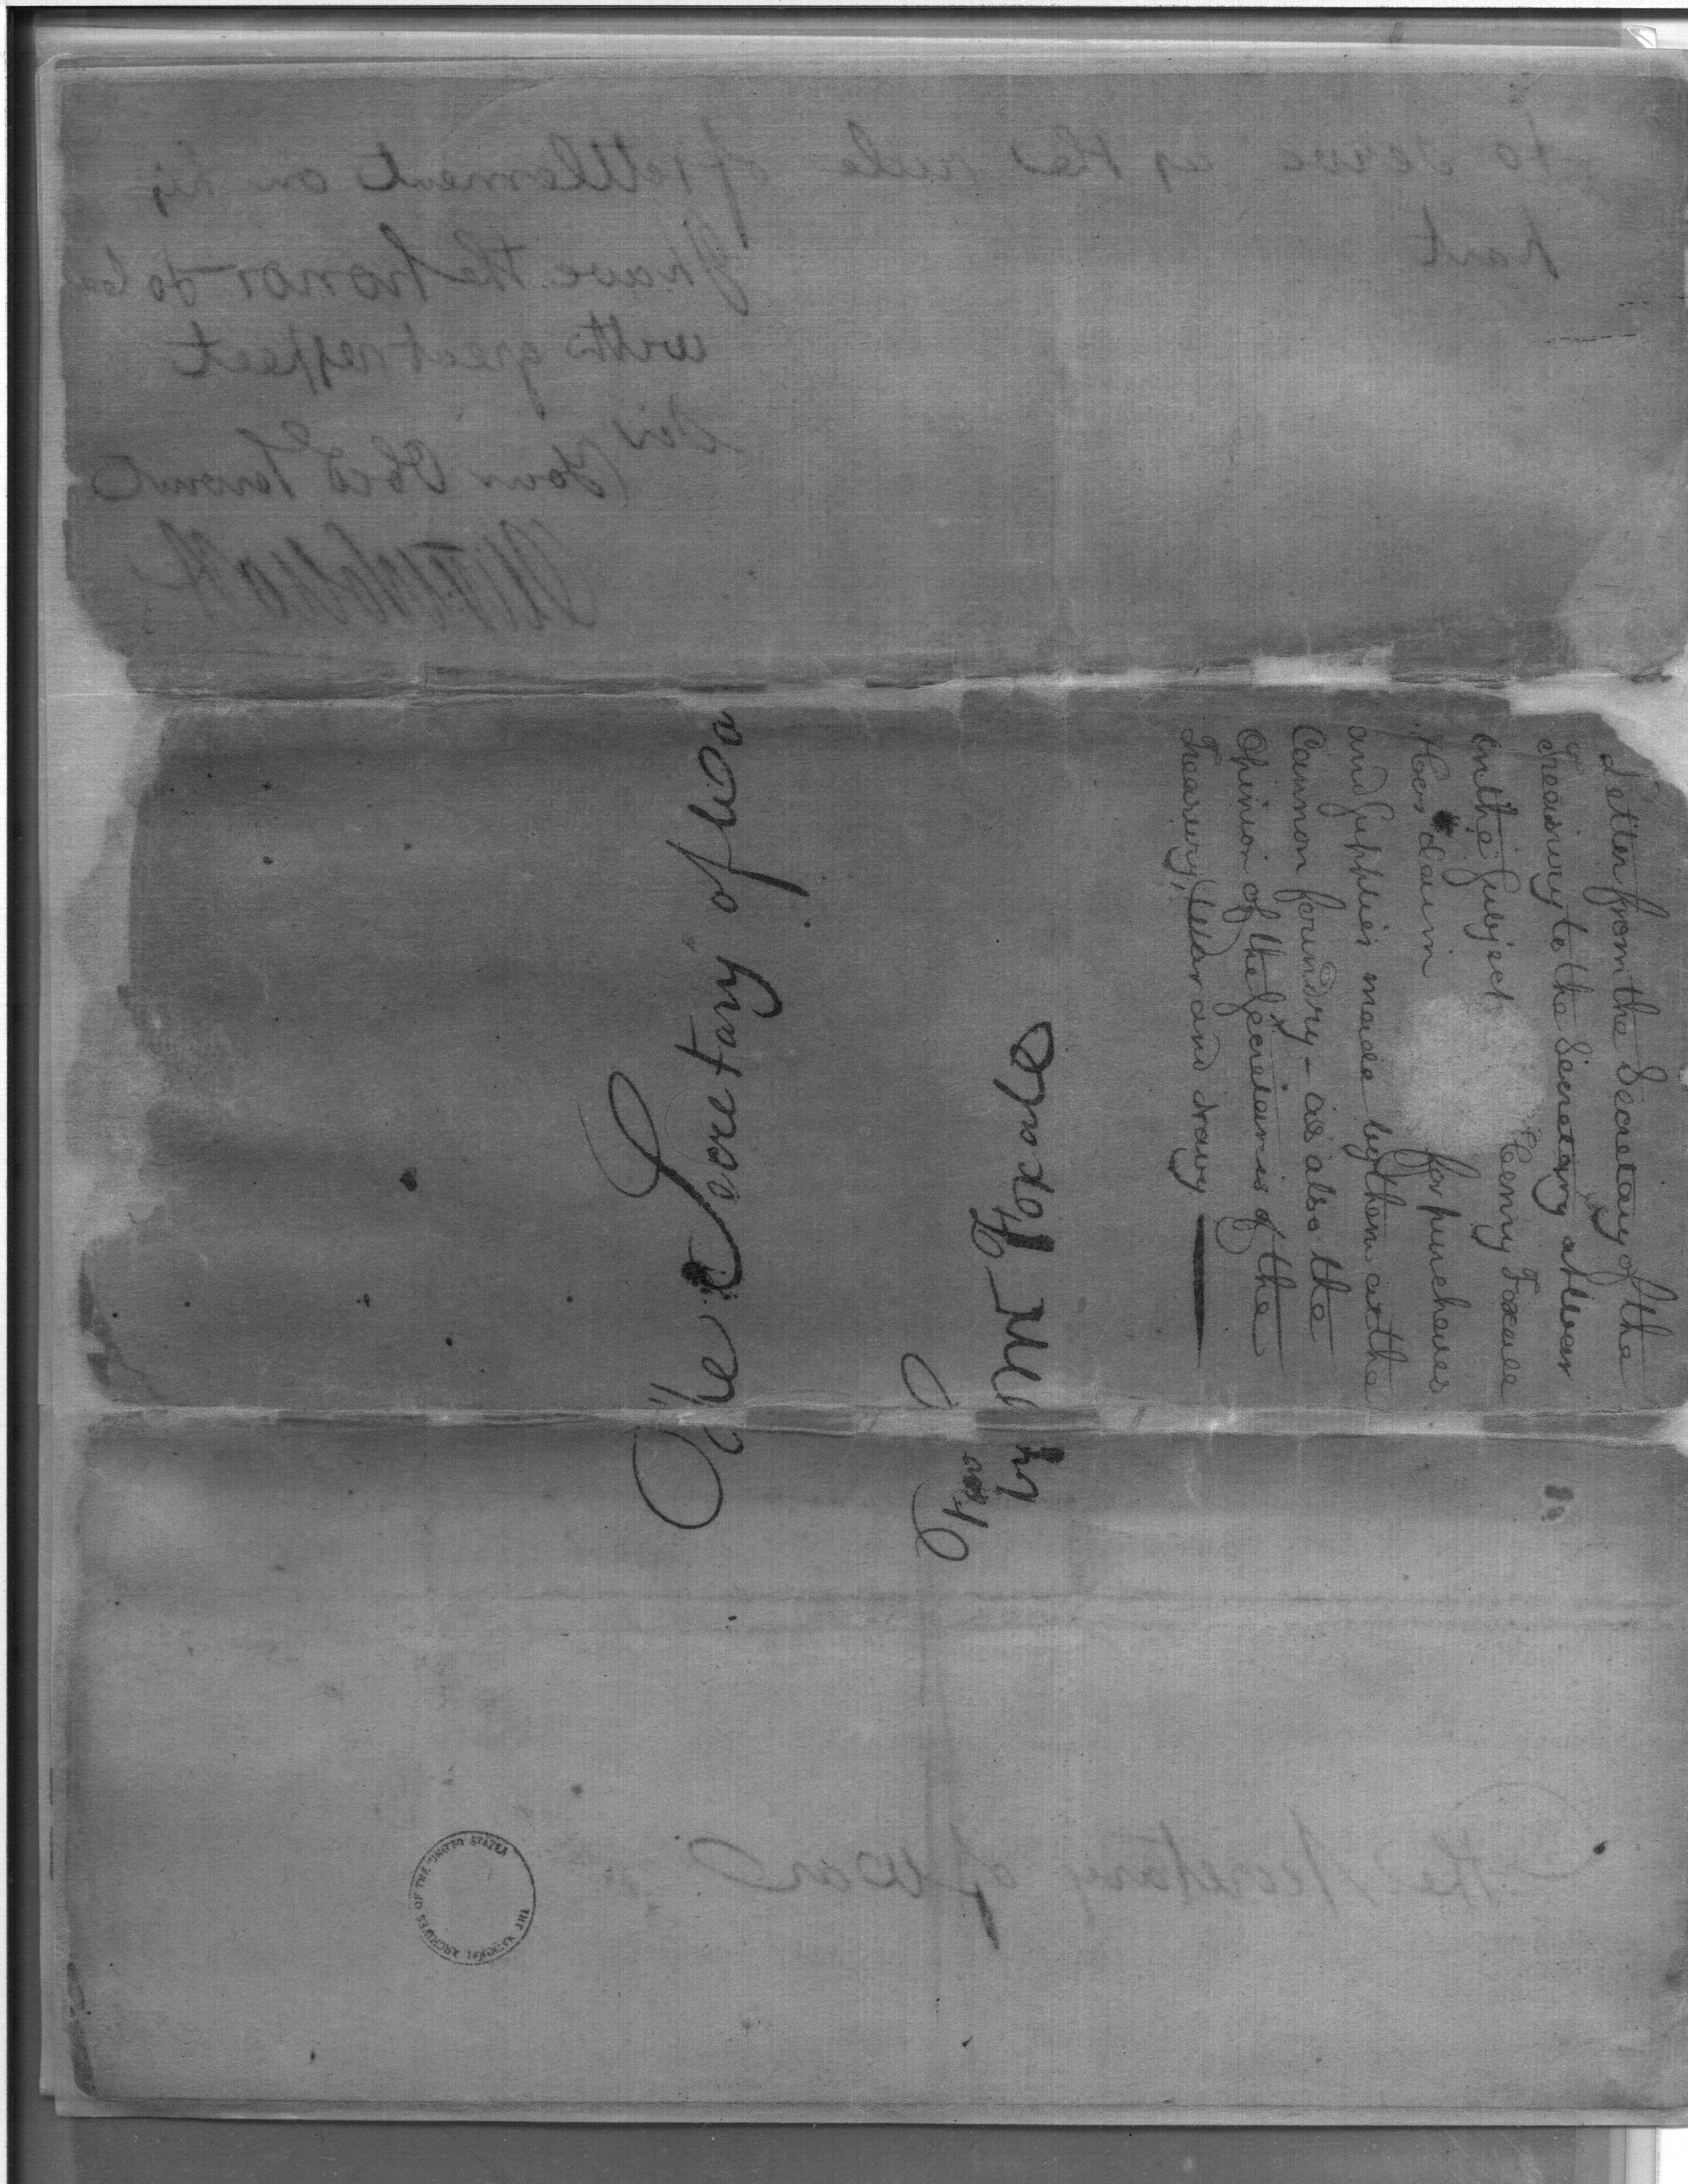 to serve as the rule of settlement on his
part
I have the honor to be
with great respect
Sir
Your Obed Servant
The Secretary of War
from
by Mr Foxale
Letter from the Secretary of the
Treasury to the Secretary at War
on the subject Henry Foxall
claim for purchases
and supplies made by them at the
Cannon foundry - as also the
Opinion of the Secretaries of the
Treasury, War and Navy
the Secretary of War
THE NATIONAL ARCHIVES OF THE UNITED STATES